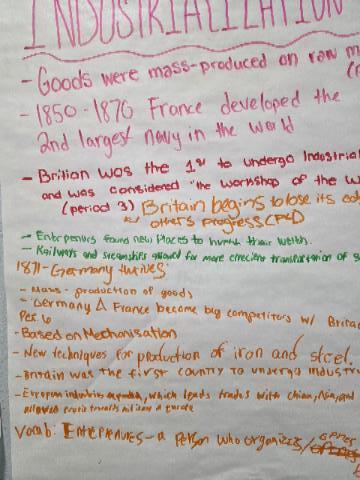 INDUSTRIALIZATION
- Goods were mass-produced on raw m
- 1850-1870 France developed the
2nd largest navy in the world
- Brition was the 1st to undergo Industrial
and was considered "the workshop of the w
(period 3) Britain begins to lose its edge
others progress (P6)
- Entrpenurs found new places to their welth.
- Railways and steamships allowed for more efecient transportation of g
1871-Germany thrives:
- Mass-production of goods
- Germany & France become big competitors w/ Britai
Per. 6
- Based on Mechonisation
- New techniques for production of iron and steel.
- Britain was the first country to undergo industri
- European industries expanded, which leads trades with china,
allowed
Vocab: Entreprenures - a person who organizes/